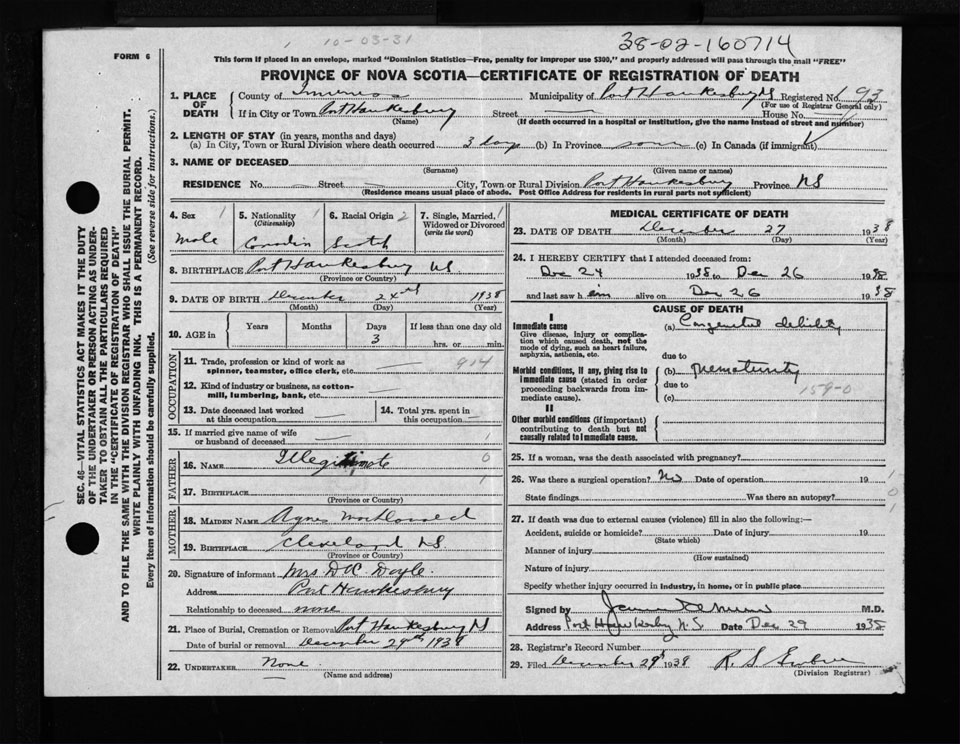 10-03-31
38-02-160714
FORM 6
This form if placed in an envelope, marked "Dominion Statistics—Free, penalty for improper use $300," and properly addressed will pass through the mail "FREE"
PROVINCE OF NOVA SCOTIA—CERTIFICATE OF REGISTRATION OF DEATH
SEC. 46—VITAL STATISTICS ACT MAKES IT THE DUTY
OF THE UNDERTAKER OR PERSON ACTING AS UNDER-
TAKER TO OBTAIN ALL THE PARTICULARS REQUIRED
IN THE "CERTIFICATE OF REGISTRATION OF DEATH"
AND TO FILE THE SAME WITH THE DIVISION REGISTRAR WHO SHALL ISSUE THE BURIAL PERMIT.
WRITE PLAINLY WITH UNFADING INK. THIS IS A PERMANENT RECORD.
Every item of information should be carefully supplied. (See reverse side for instructions.)
1. PLACE OF DEATH
County of Inverness Municipality of Port Hawkesbury NS Registered No. 93
(For use of Registrar General only)
If in City or Town Port Hawkesbury Street House No.
(Name) (If death occurred in a hospital or institution, give the name instead of street and number)
2. LENGTH OF STAY (in years, months and days)
(a) In City, Town or Rural Division where death occurred 3 days (b) In Province same (c) In Canada (if immigrant)
3. NAME OF DECEASED
(Surname) (Given name or names)
RESIDENCE No. Street City, Town or Rural Division Port Hawkesbury Province NS
(Residence means usual place of abode. Post Office Address for residents in rural parts not sufficient)
4. Sex 1
Male
5. Nationality 1
(Citizenship)
Canadian
6. Racial Origin 2
Scotch
7. Single, Married, Widowed or Divorced
(write the word)
8. BIRTHPLACE Port Hawkesbury NS
(Province or Country)
9. DATE OF BIRTH December 24th 1938
(Month) (Day) (Year)
10. AGE in Years Months Days If less than one day old
3 hrs. or min.
OCCUPATION
11. Trade, profession or kind of work as
spinner, teamster, office clerk, etc. 914
12. Kind of industry or business, as cotton-
mill, lumbering, bank, etc.
13. Date deceased last worked
at this occupation
14. Total yrs. spent in
this occupation
15. If married give name of wife
or husband of deceased
FATHER
16. NAME Illegitimate 0
17. BIRTHPLACE
(Province or Country)
MOTHER
18. MAIDEN NAME Agnes
19. BIRTHPLACE Cleveland NS
(Province or Country)
20. Signature of informant Mrs D A Doyle
Address Port Hawkesbury
Relationship to deceased none
21. Place of Burial, Cremation or Removal Port Hawkesbury NS
Date of burial or removal December 29th 1938
22. UNDERTAKER None
(Name and address)
MEDICAL CERTIFICATE OF DEATH
23. DATE OF DEATH December 27 1938
(Month) (Day) (Year)
24. I HEREBY CERTIFY that I attended deceased from:
Dec 24 1938 to Dec 26 1938
and last saw him alive on Dec 26 1938
CAUSE OF DEATH
I
Immediate cause
Give disease, injury or complica-
tion which caused death, not the
mode of dying, such as heart failure,
asphyxia, asthenia, etc.
(a) Congenital debility
due to
Morbid conditions, if any, giving rise to
immediate cause (stated in order
proceeding backwards from im-
mediate cause).
(b) prematurity
due to 159-0
(c)
II
Other morbid conditions (if important)
contributing to death but not
causally related to immediate cause.
25. If a woman, was the death associated with pregnancy?
26. Was there a surgical operation? No Date of operation 19
State findings Was there an autopsy?
27. If death was due to external causes (violence) fill in also the following:—
Accident, suicide or homicide? Date of injury 19
(State which)
Manner of injury
(How sustained)
Nature of injury
Specify whether injury occurred in industry, in home, or in public place
Signed by M.D.
Address Port Hawkesbury N.S. Date Dec 29 1938
28. Registrar's Record Number
29. Filed December 29th 1938 R. S.
(Division Registrar)